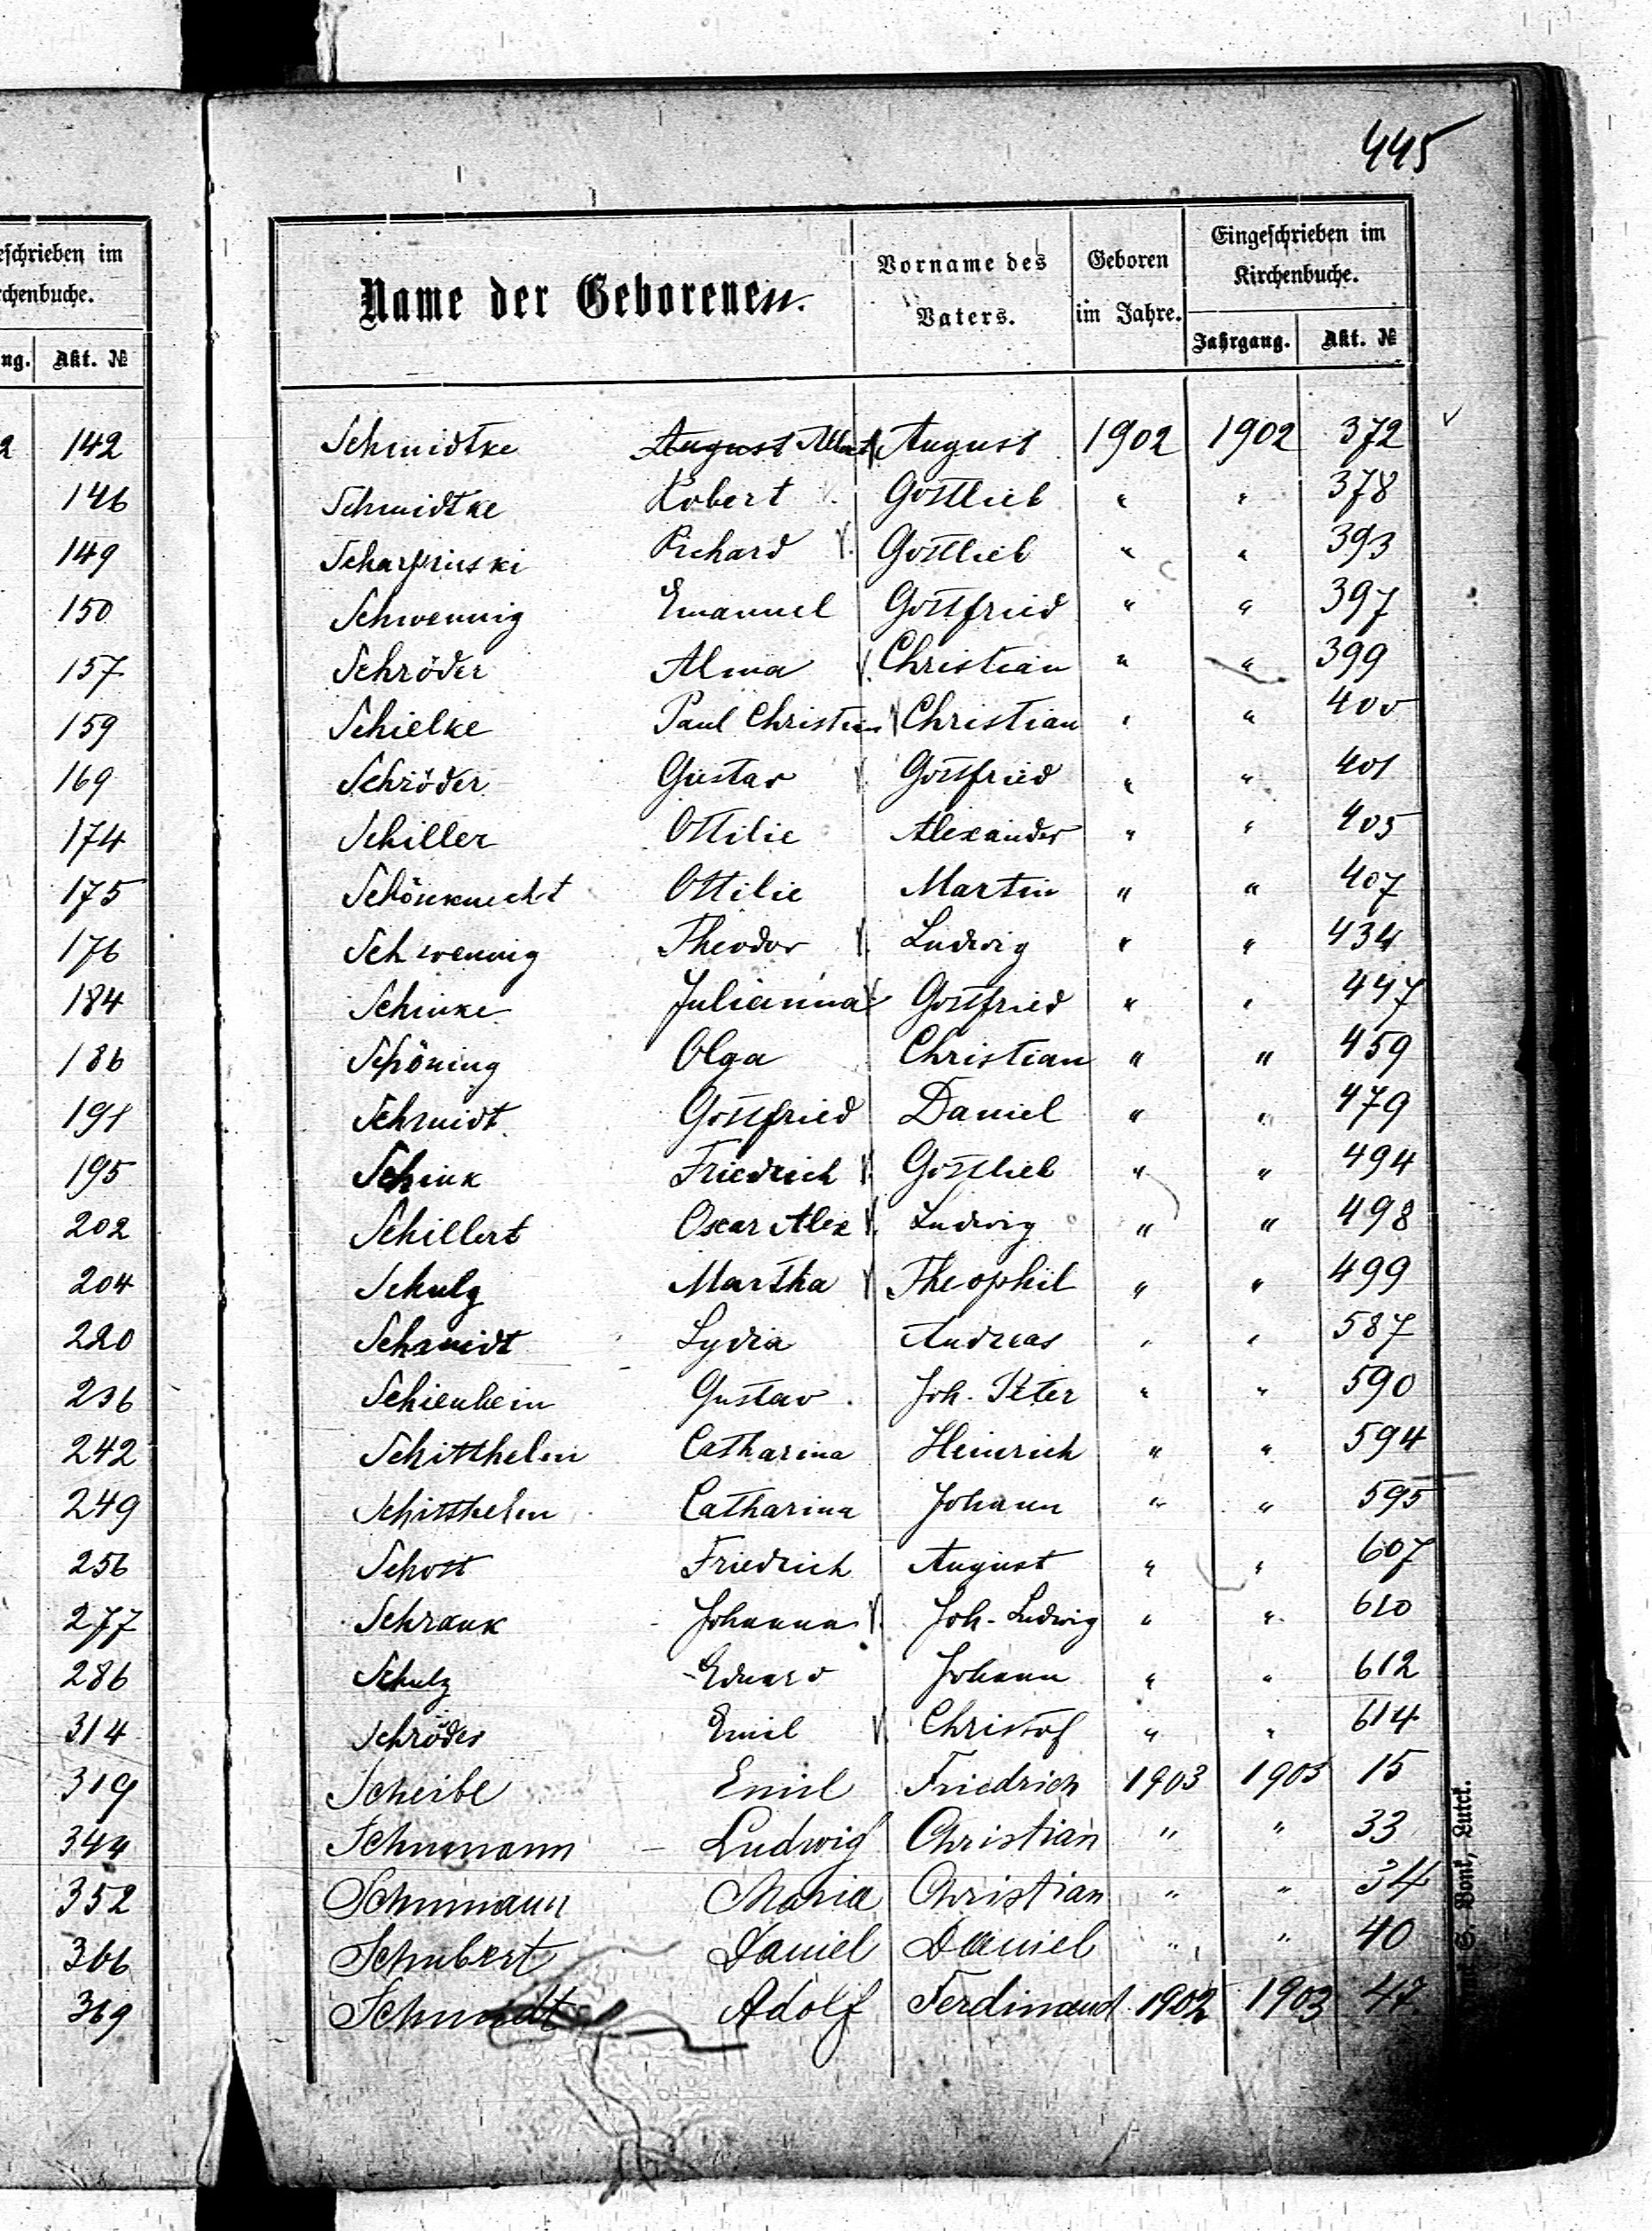 445
eschrieben im
rchenbuche.
ng. Akt. №
142
146
149
150
157
159
169
174
175
176
184
186
191
195
202
204
220
236
242
249
256
277
286
314
319
344
352
366
369
Name der Geborenen. Vorname des Vaters. Geboren im Jahre. Eingeschrieben im Kirchenbuche.
Jahrgang. Akt. №
Schmidtke August Albert August 1902 1902 372
Schmidtke Robert Gottlieb " " 378
Scharfinski Richard Gottlieb " " 393
Schwennig Emanuel Gottfried " " 397
Schröder Alma Christian " " 399
Schielke Paul Christian Christian " " 400
Schröder Gustav Gottfried " " 401
Schiller Ottilie Alexander " " 405
Schönknecht Ottilie Martin " " 407
Schwennig Theodor Ludwig " " 434
Schinke Julianna Gottfried " " 447
Schöning Olga Christian " " 459
Schmidt Gottfried Daniel " " 479
Schink Friedrich Gottlieb " " 494
Schillert Oscar Alex Ludwig " " 498
Schulz Martha Theophil " " 499
Schmidt Lydia Andreas " " 587
Schienbein Gustav Joh. Peter " " 590
Schitthelm Catharina Heinrich " " 594
Schitthelm Catharina Johann " " 595
Schott Friedrich August " " 607
Schrank Johanna Joh. Ludwig " " 610
Schulz Eduard Johann " " 612
Schröder Emil Christof " " 614
Scheibe Emil Friedrich 1903 1903 15
Schumann Ludwig Christian " " 33
Schumann Maria Christian " " 34
Schubert Daniel Daniel " " 40
Schmidt Adolf Ferdinand 1902 1903 47